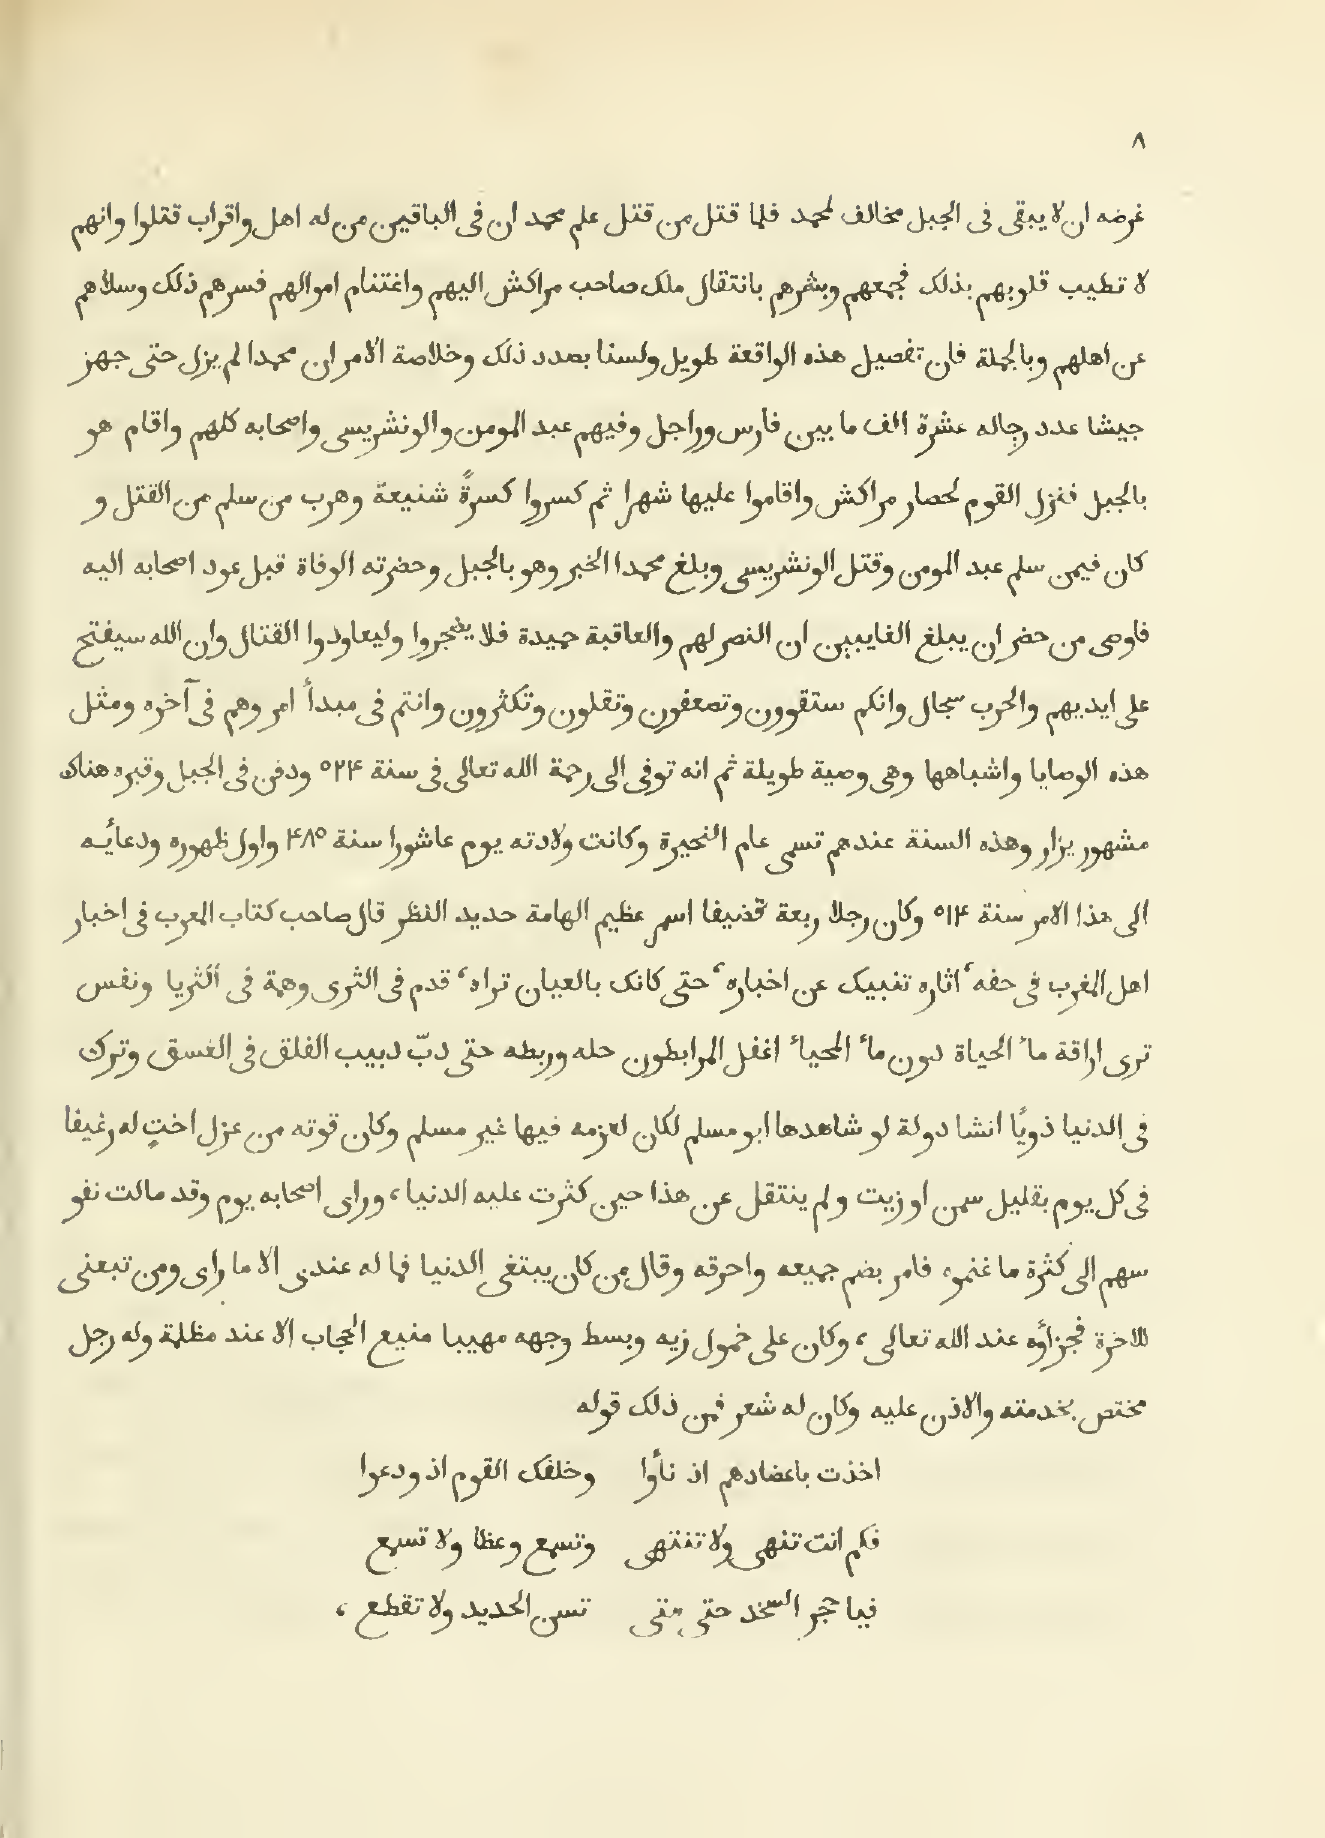 ٨
غرضه ان لا يبقى فى الجبل مخالف لمحمد فلما قتل من قتل علم محمد ان فى الباقين من له اهل واقراب قتلوا وانهم
لا تطيب قلوبهم بذلك فجمعهم وبشرهم بانتقال ملك صاحب مراكش اليهم واغتنام اموالهم فسرهم ذلك وسلاهم
عن اهلهم وبالجملة فان تفصيل هذه الواقعة طويل ولسنا بصدد ذلك وخلاصة الامر ان محمدا لم يزل حتى جهز
جيشا عدد رجاله عشرة الف ما بين فارس وراجل وفيهم عبد المومن والونشريسى واصحابه كلهم واقام هو
بالجبل فنزل القوم لحصار مراكش واقاموا عليها شهرا ثم كسروا كسرةً شنيعة وهرب من سلم من القتل و
كان فيمن سلم عبد المومن وقتل الونشريسى وبلغ محمدا الخبر وهو بالجبل وحضرته الوفاة قبل عود اصحابه اليه
فاوصى من حضر ان يبلغ الغايبين ان النصر لهم والعاقبة حميدة فلا يضجروا وليعاودوا القتال وان الله سيفتح
على ايديهم والحرب سجال وانكم ستقوون وتضعفون وتقلون وتكثرون وانتم فى مبدأ امر وهم فى آخره ومثل
هذه الوصايا واشباهها وهى وصية طويلة ثم انه توفى الى رحمة الله تعالى فى سنة ٥٢۴ ودفن فى الجبل وقبره هناك
مشهور يزار وهذه السنة عندهم تسمى عام النحيرة وكانت ولادته يوم عاشورا سنة ۴٨٥ واول ظهوره ودعائه
الى هذا الامر سنة ٥١۴ وكان رجلا ربعة قضيفا اسمر عظيم الهامة حديد النظر قال صاحب كتاب المعرب فى اخبار
اهل المغرب فى حقه، اثاره تنبيك عن اخباره، حتى كانك بالعيان تراه، قدم فى الثرى وهمة فى الثريا ونفس
ترى اراقة ماء الحياة دون ماء المحياء اغفل المرابطون حله وربطه حتى دبّ دبيب الفلق فى الغسق وترك
فى الدنيا دويًا انشا دولة لو شاهدها ابو مسلم لكان لعزمه فيها غير مسلم وكان قوته من غزل اختٍ له رغيفا
فى كل يوم بقليل سمن او زيت ولم ينتقل عن هذا حين كثرت عليه الدنيا، وراى اصحابه يوم وقد مالت نفو
سهم الى كثرة ما غنموه فامر بضم جميعه واحرقه وقال من كان يبتغى الدنيا فما له عندى الا ما راى ومن تبعنى
للاخرة فجزاؤه عند الله تعالى، وكان على خمول زيه وبسط وجهه مهيبا منيع الحجاب الا عند مظلمة وله رجل
مختص بخدمته والاذن عليه وكان له شعر فمن ذلك قوله
اخذت باعضادهم اذ نأوا وخلفك القوم اذ ودعوا
فكم انت تنهى ولا تنتهى وتسمع وعظا ولا تسمع
فيا حجر السحذ حتى متى تسن الحديد ولا تقطع،